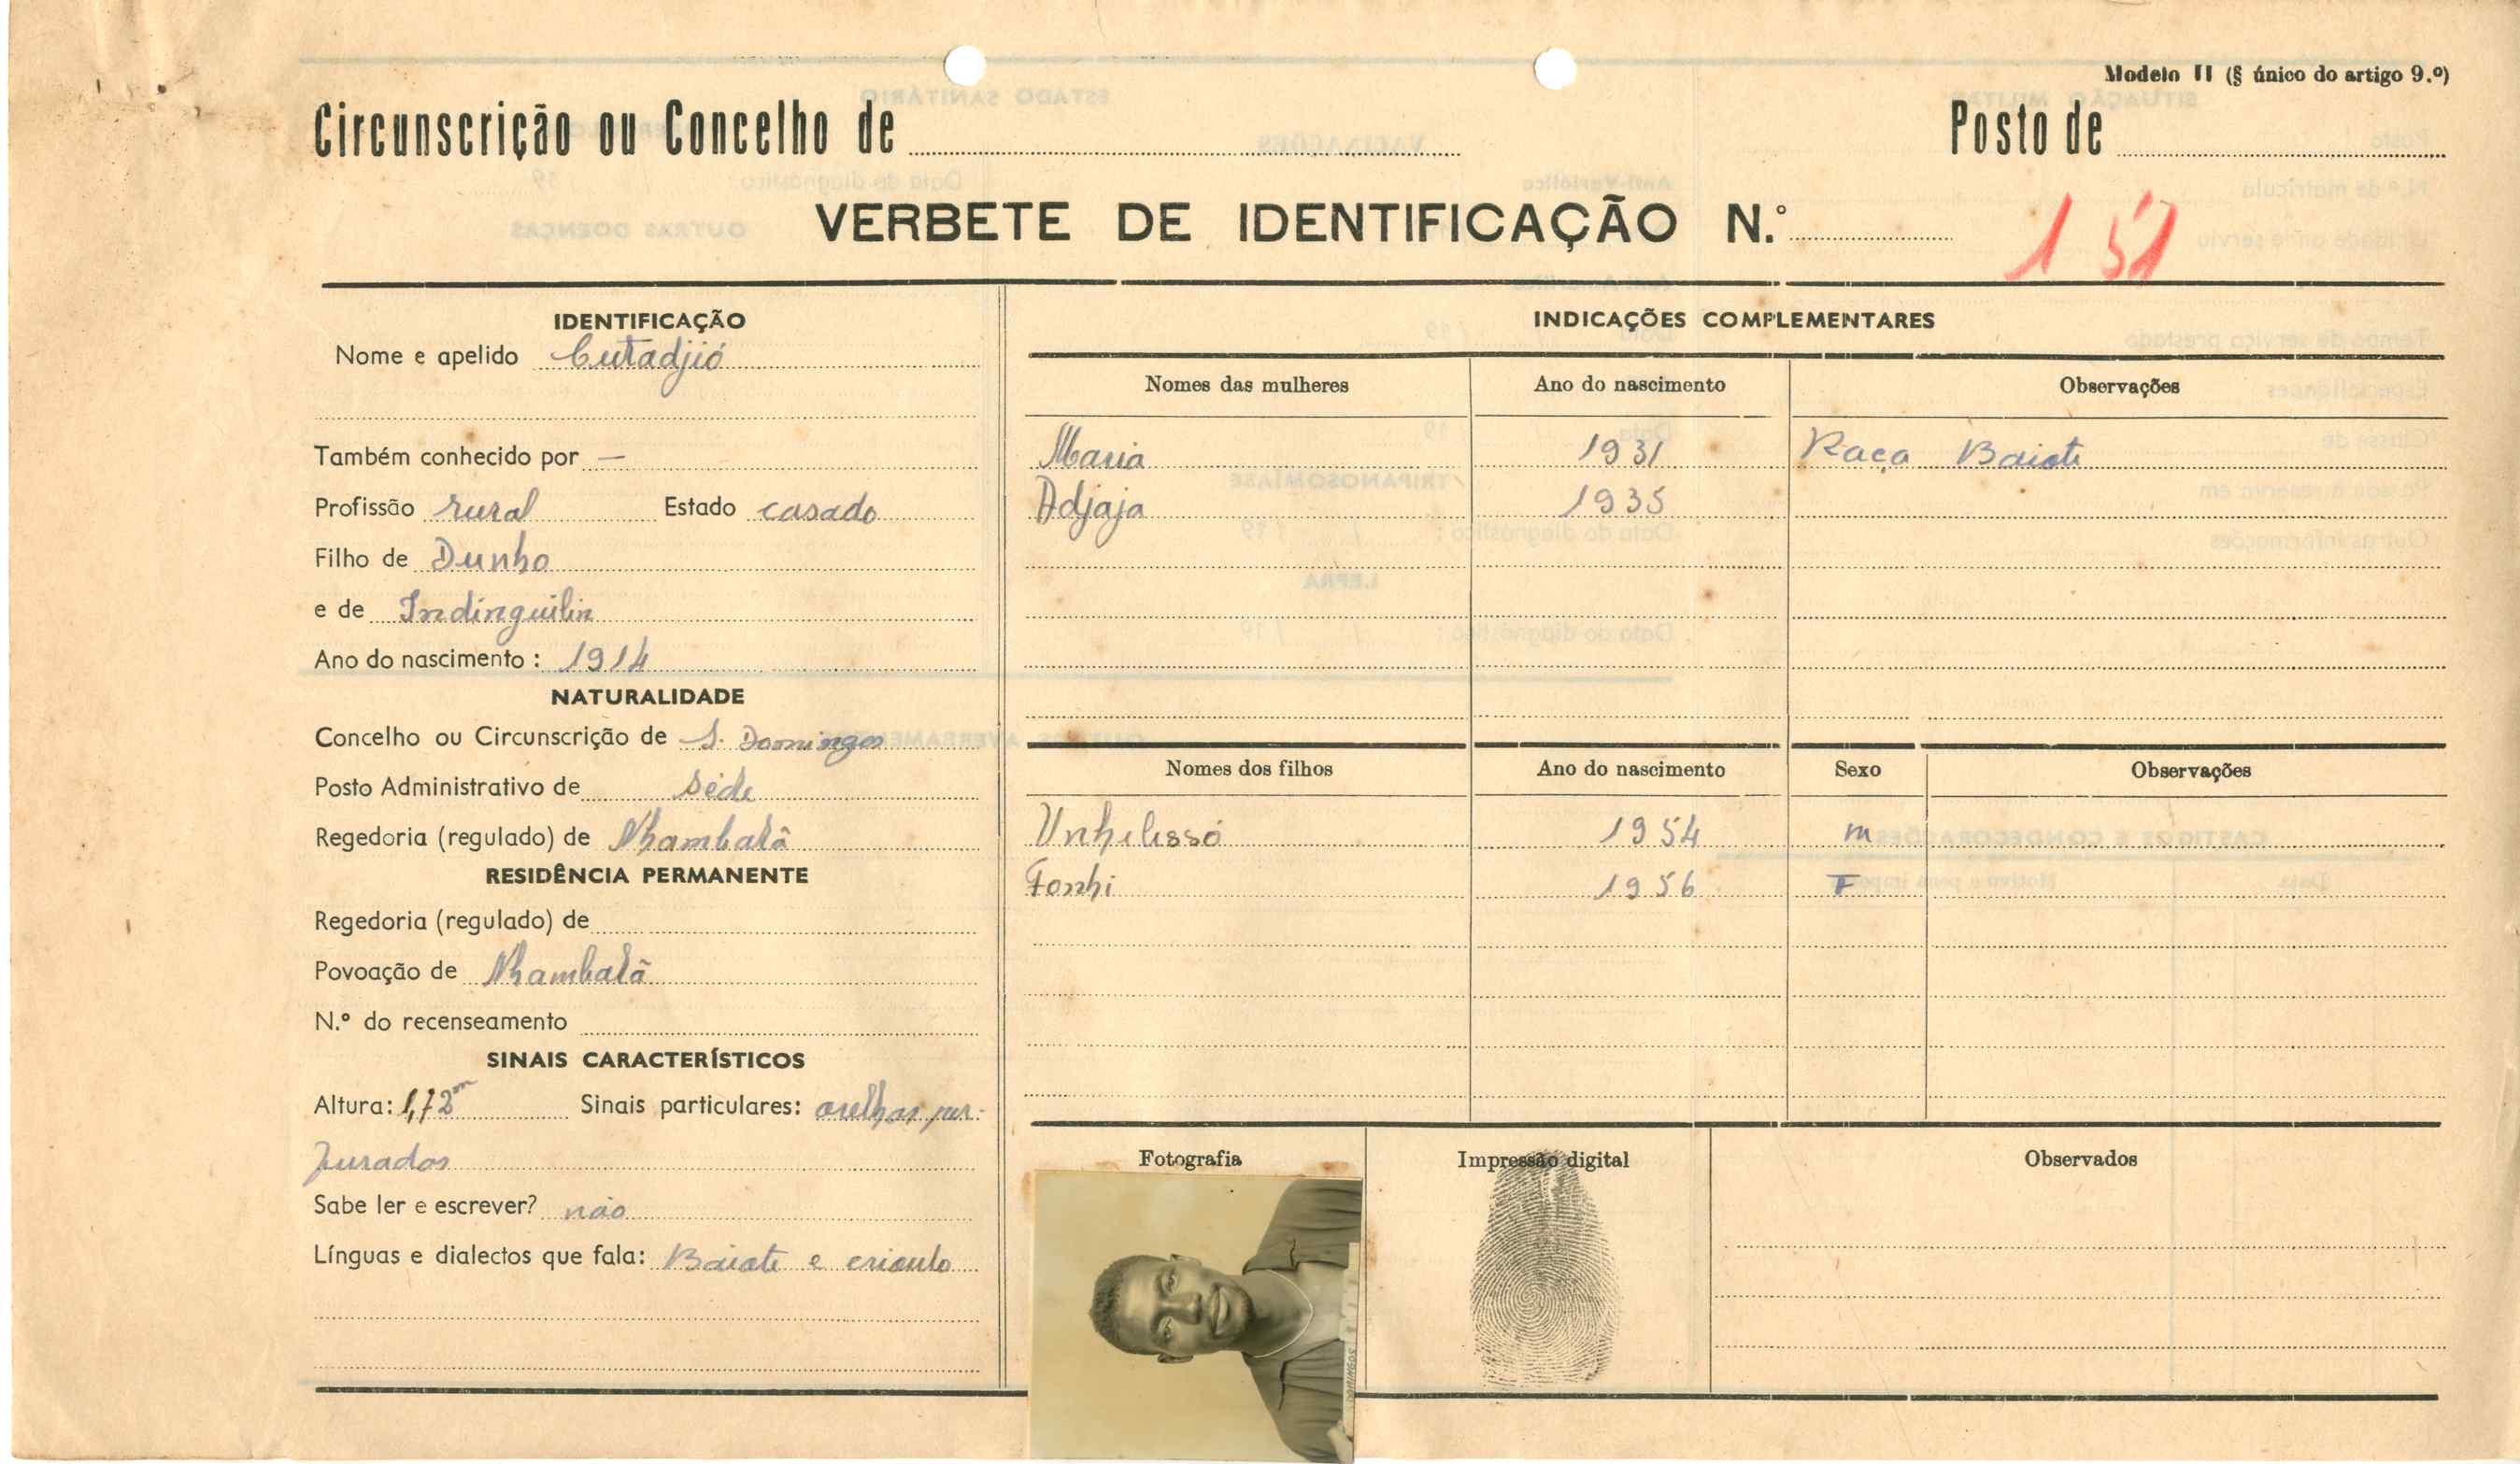 Modelo II (§ único do artigo 9.º)
Circunscrição ou Concelho de
Posto de
VERBETE DE IDENTIFICAÇÃO N.º
151
IDENTIFICAÇÃO
Nome e apelido Cutadjió
Também conhecido por —
Profissão rural Estado casado
Filho de Dunho
e de Indinguilin
Ano do nascimento : 1914
NATURALIDADE
Concelho ou Circunscrição de S. Domingos
Posto Administrativo de Séde
Regedoria (regulado) de Nhambalã
RESIDÊNCIA PERMANENTE
Regedoria (regulado) de
Povoação de Nhambalã
N.º do recenseamento
SINAIS CARACTERÍSTICOS
Altura: 1,72m Sinais particulares: orelhas per-
furados
Sabe ler e escrever? não
Línguas e dialectos que fala: Baiote e crioulo
INDICAÇÕES COMPLEMENTARES
Nomes das mulheres Ano do nascimento Observações
Maria 1931 Raça Baiote
Adjaja 1935
Nomes dos filhos Ano do nascimento Sexo Observações
Unhelissó 1954 m
Fonhi 1956 F
Fotografia Impressão digital Observados
DOMINGOS